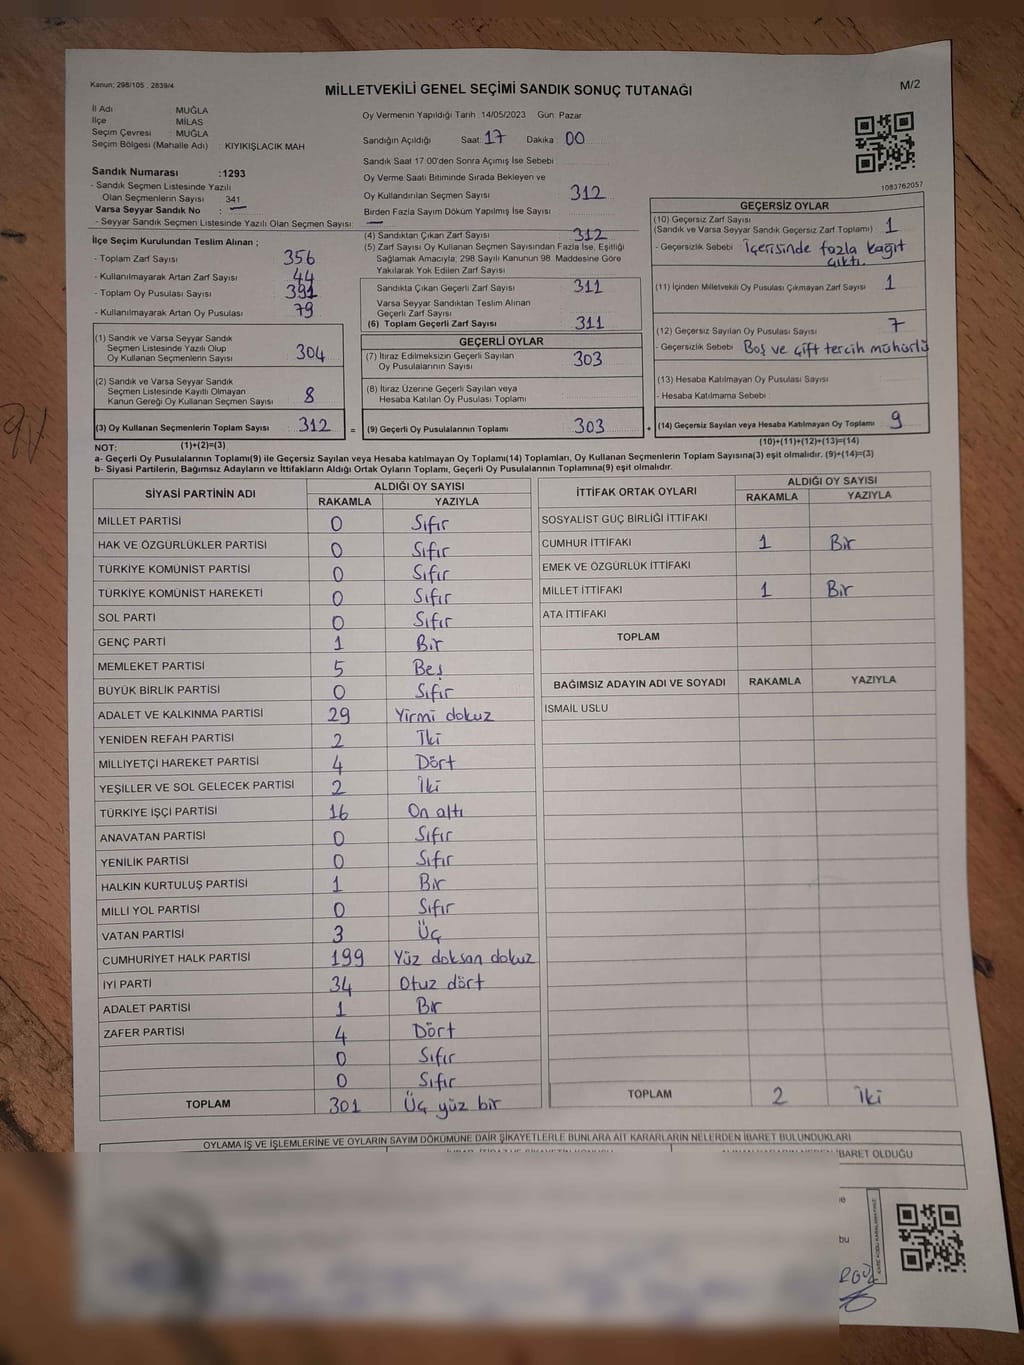 Kanun: 298/105 . 2839/4
MİLLETVEKİLİ GENEL SEÇİMİ SANDIK SONUÇ TUTANAĞI
M/2
İl Adı : MUĞLA
İlçe : MİLAS
Seçim Çevresi : MUĞLA
Seçim Bölgesi (Mahalle Adı) : KIYIKIŞLACIK MAH
Oy Vermenin Yapıldığı Tarih : 14/05/2023 Gün: Pazar
Sandığın Açıldığı Saat: 17 Dakika : 00
Sandık Saat 17 00'den Sonra Açımış İse Sebebi :
Oy Verme Saati Bitiminde Sırada Bekleyen ve
Oy Kullandırılan Seçmen Sayısı 312
Birden Fazla Sayım Döküm Yapılmış İse Sayısı —
1083762057
Sandık Numarası :1293
- Sandık Seçmen Listesinde Yazılı
Olan Seçmenlerin Sayısı 341
Varsa Seyyar Sandık No : —
- Seyyar Sandık Seçmen Listesinde Yazılı Olan Seçmen Sayısı: —
İlçe Seçim Kurulundan Teslim Alınan ;
- Toplam Zarf Sayısı 356
- Kullanılmayarak Artan Zarf Sayısı 44
- Toplam Oy Pusulası Sayısı 391
- Kullanılmayarak Artan Oy Pusulası 79
(1) Sandık ve Varsa Seyyar Sandık
Seçmen Listesinde Yazılı Olup
Oy Kullanan Seçmenlerin Sayısı 304
(2) Sandık ve Varsa Seyyar Sandık
Seçmen Listesinde Kayıtlı Olmayan
Kanun Gereği Oy Kullanan Seçmen Sayısı 8
(3) Oy Kullanan Seçmenlerin Toplam Sayısı 312 =
(1)+(2)=(3)
(4) Sandıktan Çıkan Zarf Sayısı 312
(5) Zarf Sayısı Oy Kullanan Seçmen Sayısından Fazla İse, Eşitliği
Sağlamak Amacıyla; 298 Sayılı Kanunun 98. Maddesine Göre
Yakılarak Yok Edilen Zarf Sayısı
Sandıkta Çıkan Geçerli Zarf Sayısı 311
Varsa Seyyar Sandıktan Teslim Alınan
Geçerli Zarf Sayısı
(6) Toplam Geçerli Zarf Sayısı 311
GEÇERLİ OYLAR
(7) İtiraz Edilmeksizin Geçerli Sayılan
Oy Pusulalarının Sayısı 303
(8) İtiraz Üzerine Geçerli Sayılan veya
Hesaba Katılan Oy Pusulası Toplamı
(9) Geçerli Oy Pusulalarının Toplamı 303 +
GEÇERSİZ OYLAR
(10) Geçersiz Zarf Sayısı
(Sandık ve Varsa Seyyar Sandık Geçersiz Zarf Toplamı) 1
- Geçersizlik Sebebi : İçerisinde fazla kağıt
çıktı.
(11) İçinden Milletvekili Oy Pusulası Çıkmayan Zarf Sayısı 1
(12) Geçersiz Sayılan Oy Pusulası Sayısı 7
- Geçersizlik Sebebi : Boş ve çift tercih mühürlü
(13) Hesaba Katılmayan Oy Pusulası Sayısı
- Hesaba Katılmama Sebebi :
(14) Geçersiz Sayılan veya Hesaba Katılmayan Oy Toplamı 9
(10)+(11)+(12)+(13)=(14)
NOT:
a- Geçerli Oy Pusulalarının Toplamı(9) ile Geçersiz Sayılan veya Hesaba katılmayan Oy Toplamı(14) Toplamları, Oy Kullanan Seçmenlerin Toplam Sayısına(3) eşit olmalıdır. (9)+(14)=(3)
b- Siyasi Partilerin, Bağımsız Adayların ve İttifakların Aldığı Ortak Oyların Toplamı, Geçerli Oy Pusulalarının Toplamına(9) eşit olmalıdır.
SİYASİ PARTİNİN ADI ALDIĞI OY SAYISI
RAKAMLA YAZIYLA
MİLLET PARTİSİ 0 Sıfır
HAK VE ÖZGÜRLÜKLER PARTİSİ 0 Sıfır
TÜRKİYE KOMÜNİST PARTİSİ 0 Sıfır
TÜRKİYE KOMÜNİST HAREKETİ 0 Sıfır
SOL PARTİ 0 Sıfır
GENÇ PARTİ 1 Bir
MEMLEKET PARTİSİ 5 Beş
BÜYÜK BİRLİK PARTİSİ 0 Sıfır
ADALET VE KALKINMA PARTİSİ 29 Yirmi dokuz
YENİDEN REFAH PARTİSİ 2 İki
MİLLİYETÇİ HAREKET PARTİSİ 4 Dört
YEŞİLLER VE SOL GELECEK PARTİSİ 2 İki
TÜRKİYE İŞÇİ PARTİSİ 16 On altı
ANAVATAN PARTİSİ 0 Sıfır
YENİLİK PARTİSİ 0 Sıfır
HALKIN KURTULUŞ PARTİSİ 1 Bir
MİLLİ YOL PARTİSİ 0 Sıfır
VATAN PARTİSİ 3 Üç
CUMHURİYET HALK PARTİSİ 199 Yüz doksan dokuz
İYİ PARTİ 34 Otuz dört
ADALET PARTİSİ 1 Bir
ZAFER PARTİSİ 4 Dört
0 Sıfır
0 Sıfır
TOPLAM 301 Üç yüz bir
İTTİFAK ORTAK OYLARI ALDIĞI OY SAYISI
RAKAMLA YAZIYLA
SOSYALİST GÜÇ BİRLİĞİ İTTİFAKI
CUMHUR İTTİFAKI 1 Bir
EMEK VE ÖZGÜRLÜK İTTİFAKI
MİLLET İTTİFAKI 1 Bir
ATA İTTİFAKI
TOPLAM
BAĞIMSIZ ADAYIN ADI VE SOYADI RAKAMLA YAZIYLA
İSMAİL USLU
TOPLAM 2 İki
OYLAMA İŞ VE İŞLEMLERİNE VE OYLARIN SAYIM DÖKÜMÜNE DAİR ŞİKAYETLERLE BUNLARA AİT KARARLARIN NELERDEN İBARET BULUNDUKLARI
İBARET OLDUĞU
bu